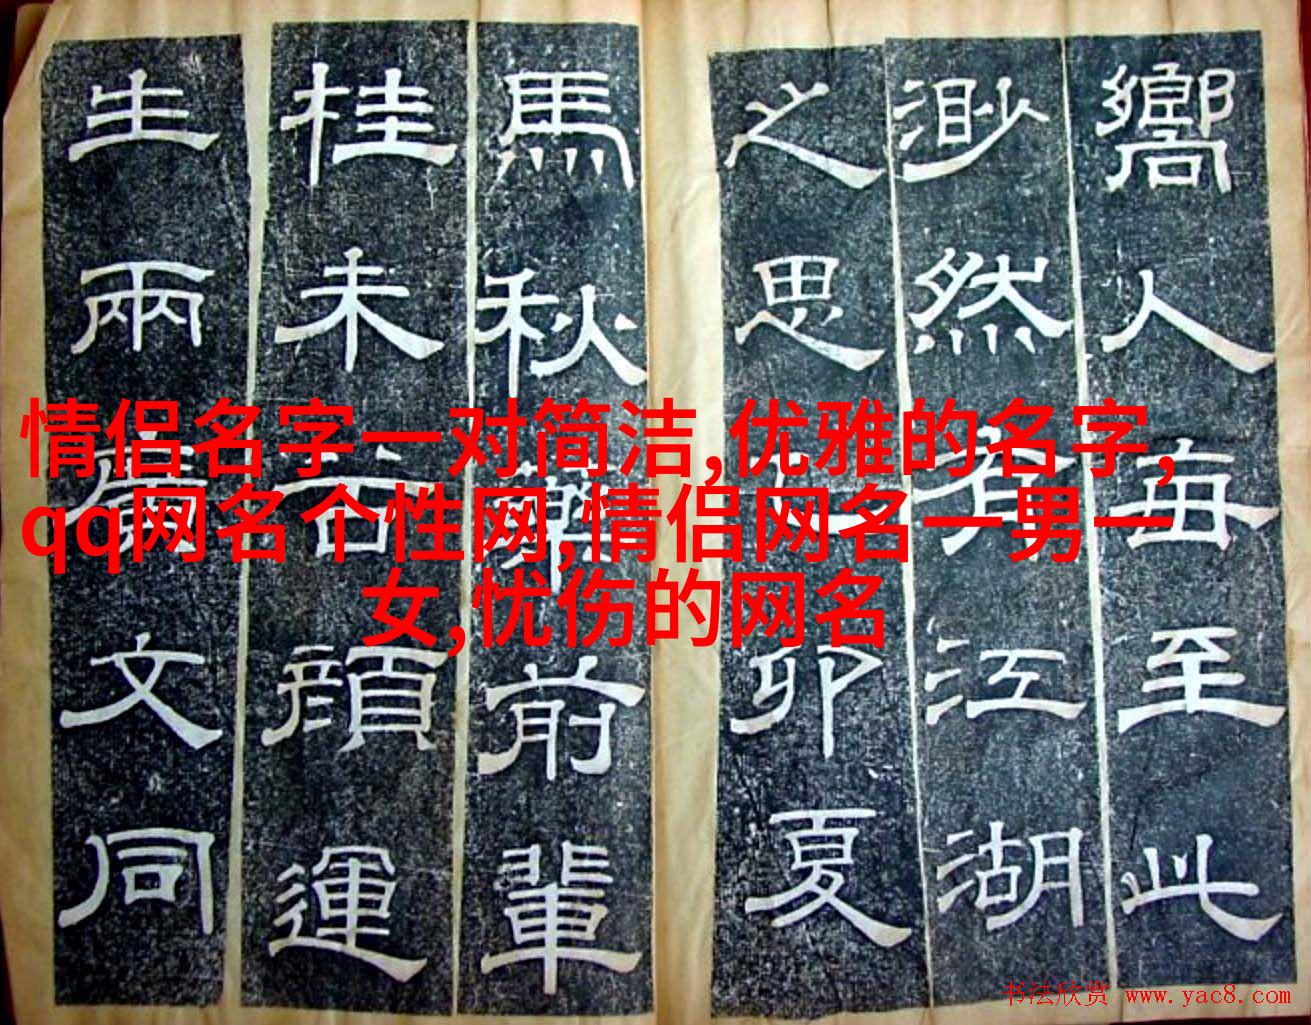 嚮人每至此
渺然有江湖
之思卯夏
馬秋藥前輩
桂未谷顏運
生兩廣文同
情侣名字一对简洁,优雅的名字,
qq网名个性网,情侣网名一男一
女,忧伤的网名
书法欣赏 www.yac8.com